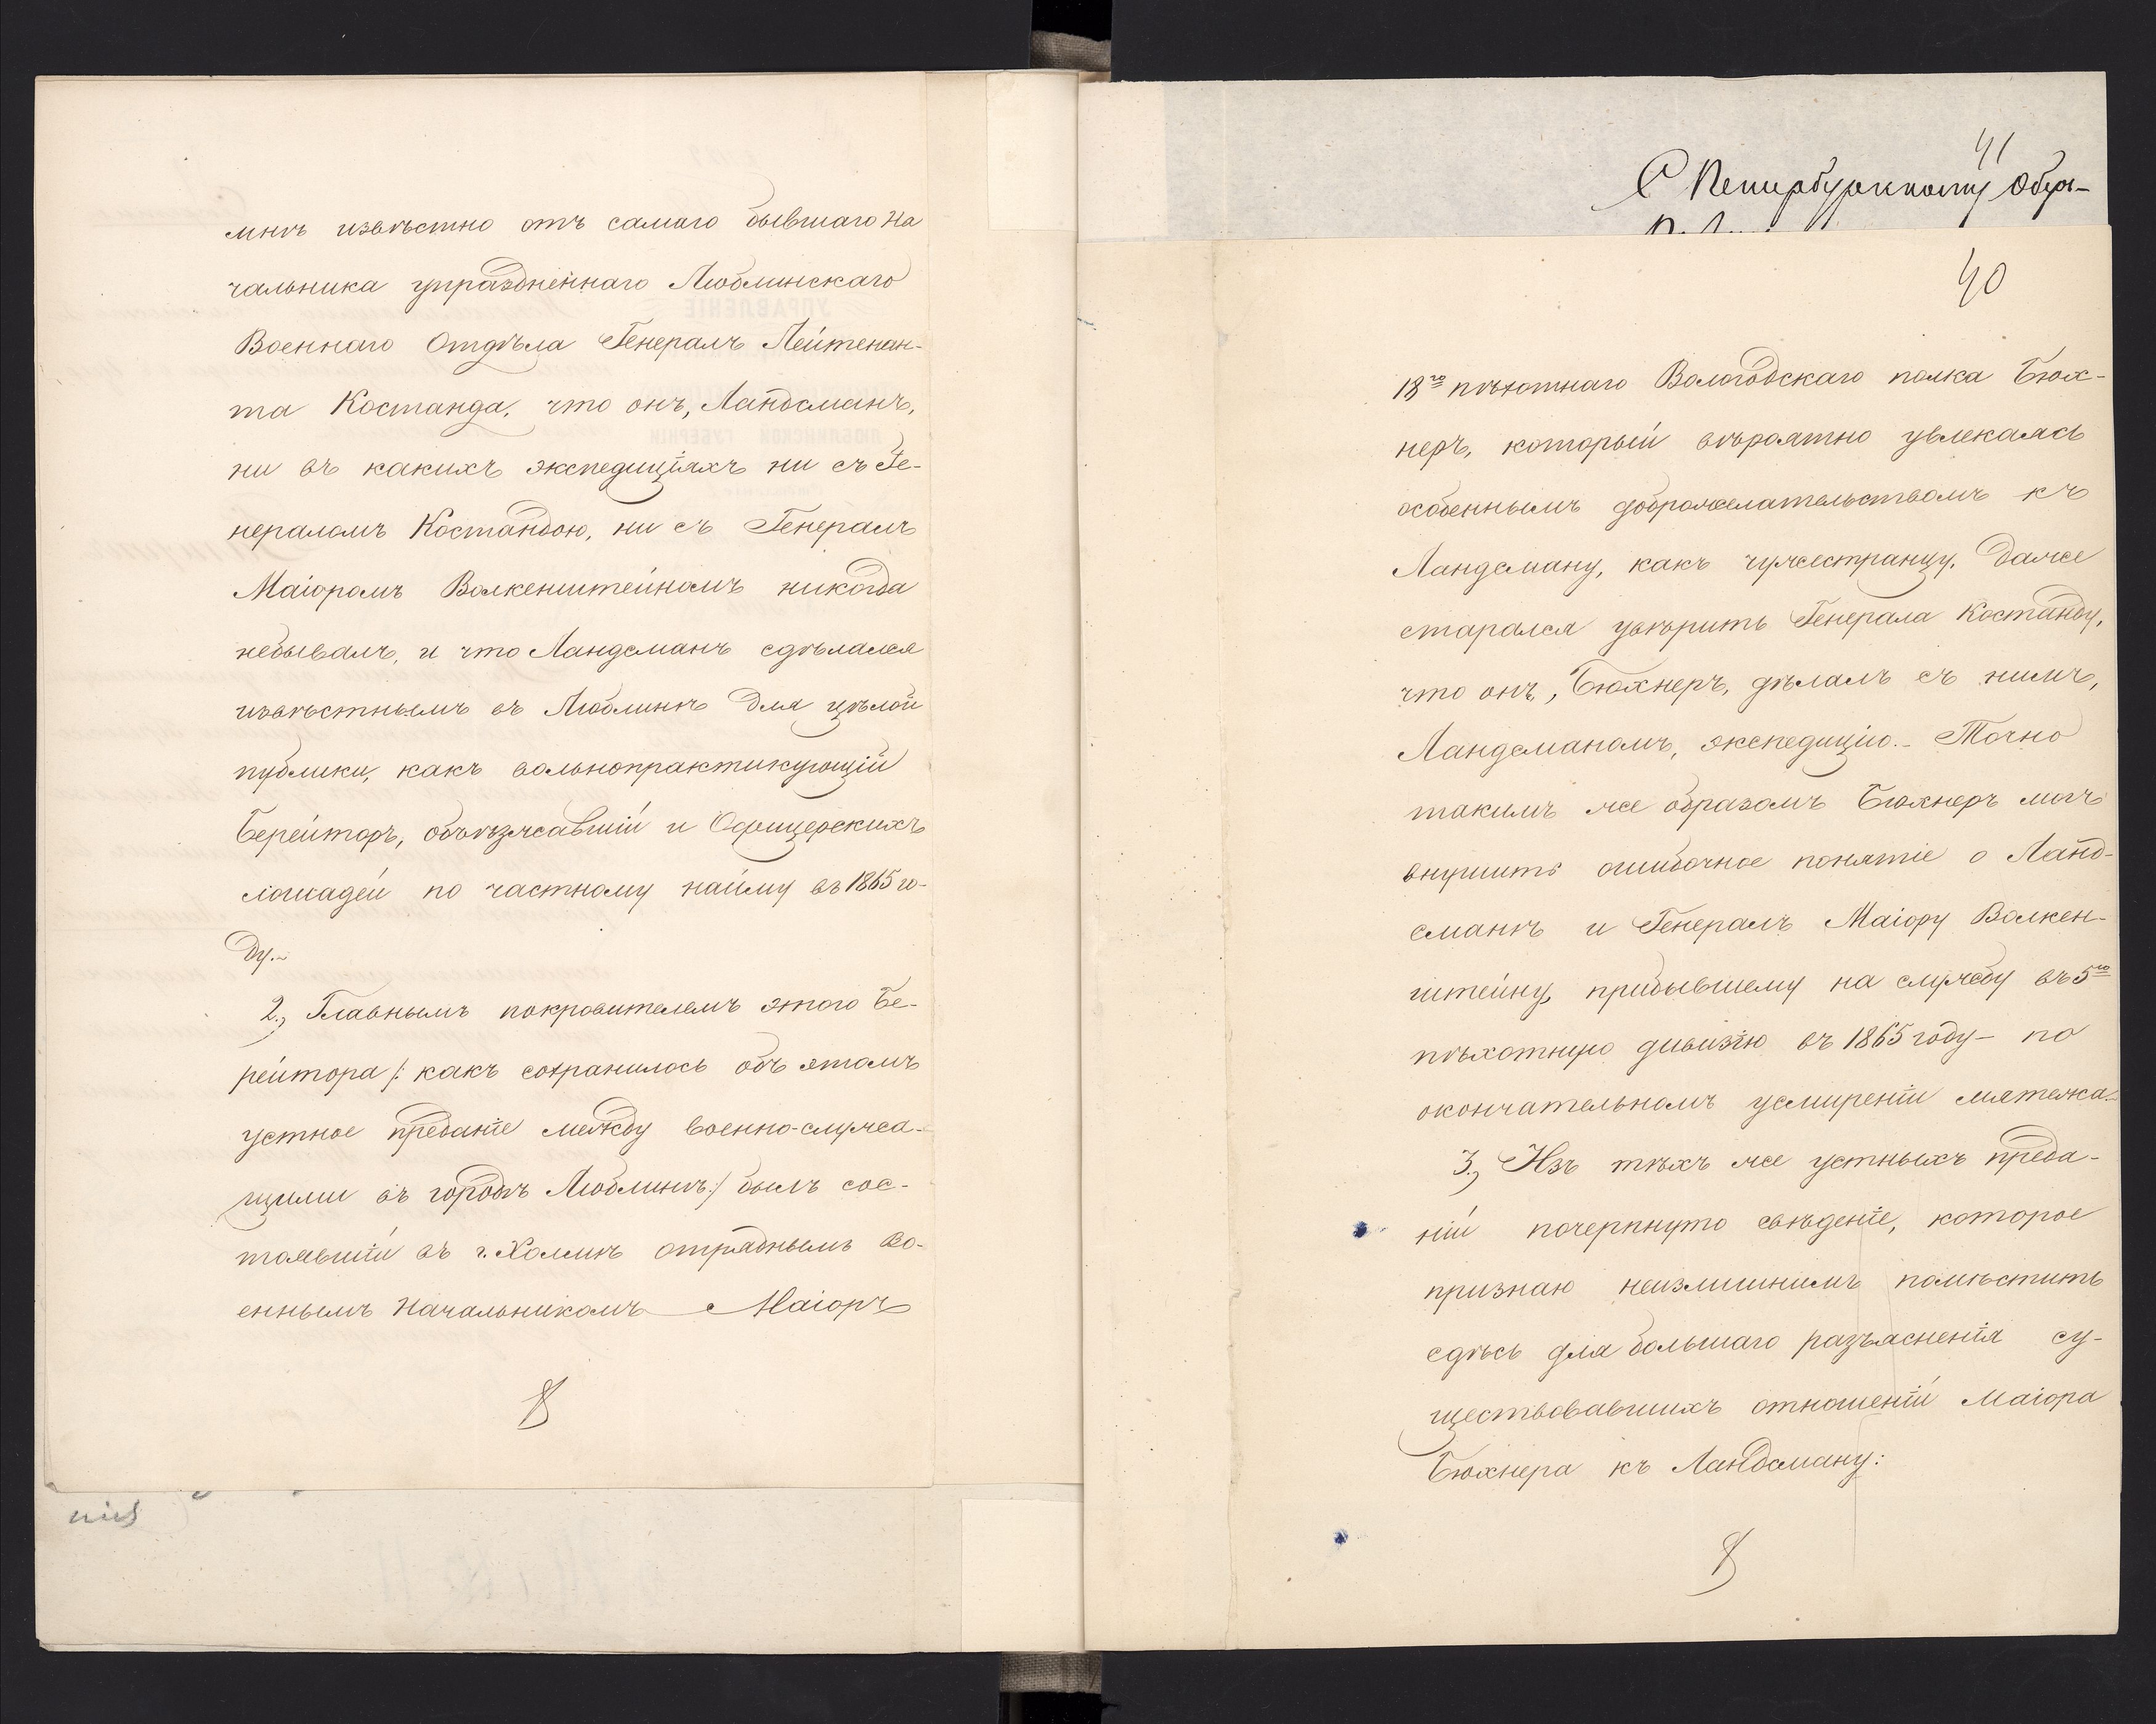 мнѣ извѣстно отъ самаго бывшаго На
чальника упраздненнаго Люблинскаго
Военнаго Отдѣла Генералъ Лейтенан-
та Костанда, что онъ, Ландсманъ,
ни въ какихъ экспедиціяхъ ни съ Ге-
нераломъ Костандою, ни съ Генералъ
Маіоромъ Волкенштейномъ никогда
небывалъ, и что Ландсманъ сдѣлался
извѣстнымъ въ Люблинѣ для цѣлой
публики, какъ вольнопрактикующій
Берейторъ, объѣзжавшій и Офицерскихъ
лошадей по частному найму въ 1865 го-
ду.-
2., Главнымъ покровителемъ этого Бе-
рейтора /: какъ сохранилось объ этомъ
устное преданіе между военно-служа-
щими въ городѣ Люблинѣ:/ былъ сос-
тоявшій въ г. Холмѣ отряднымъ Во-
еннымъ Начальникомъ Маіоръ
41
С Петербургскому Обер-
40
18го пѣхотнаго Вологодскаго полка Бюх-
неръ, который вѣроятно увлекаясь
особеннымъ доброжелательствомъ къ
Ландсману, какъ чужестранцу, даже
старался увѣрить Генерала Костанду,
что онъ, Бюхнеръ, дѣлалъ съ нимъ,
Ландсманомъ, экспедицію.- Точно
такимъ же образомъ Бюхнеръ могъ
внушить ошибочное понятіе о Ланд-
сманѣ и Генералъ Маіору Волкен-
штейну, прибывшему на службу въ 5ую
пѣхотную дивизію въ 1865 году - по
окончательномъ усмиреніи мятежа.-
3., Изъ тѣхъ же устныхъ преда-
ній почерпнуто свѣденіе, которое
признаю неизлишнимъ помѣстить
сдѣсь для большаго разъясненія су-
ществовавшихъ отношеній Маіора
Бюхнера къ Ландсману: